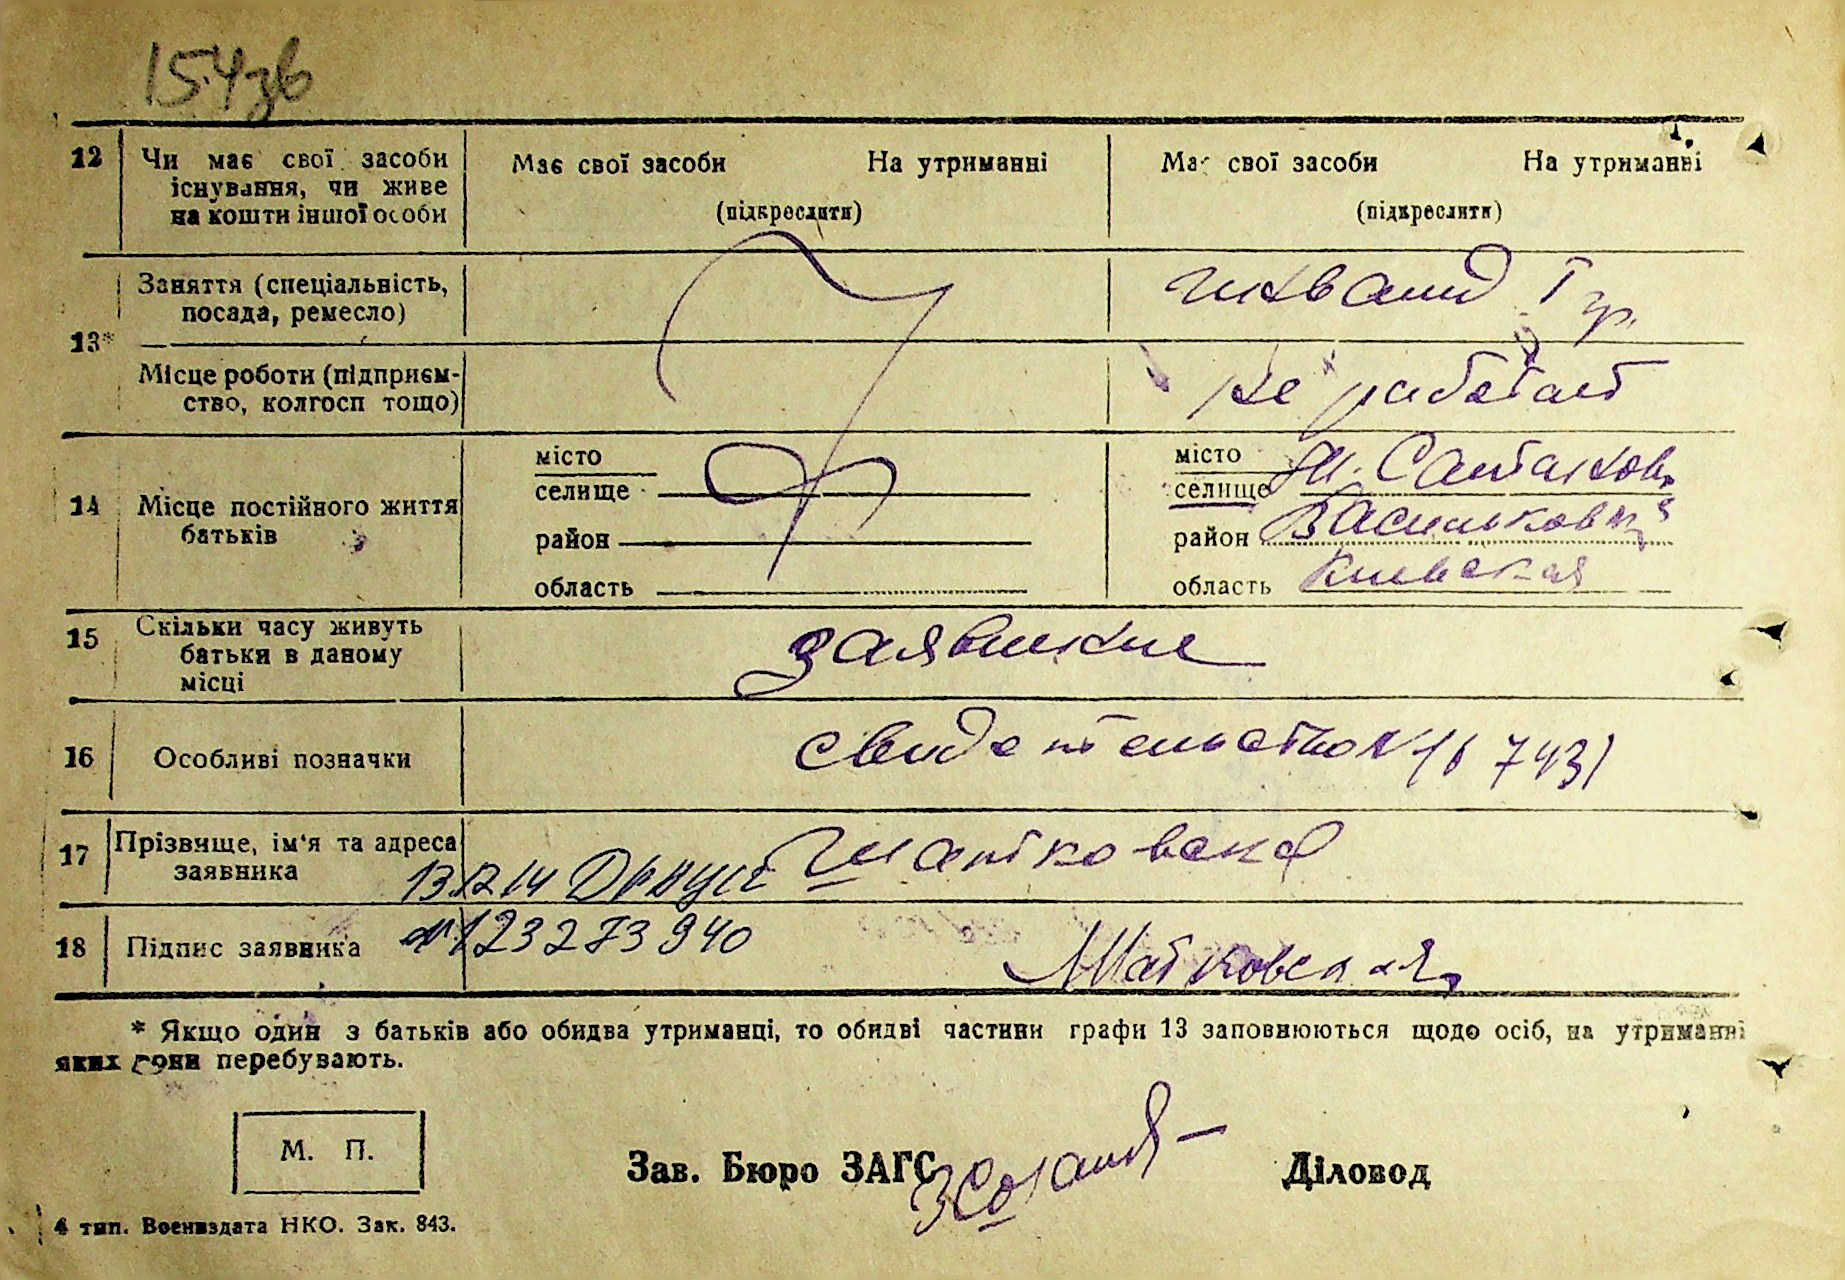 154зв
12 Чи має свої засоби існування, чи живе на кошти іншої особи
Має свої засоби На утриманні
(підкреслити)
Має свої засоби На утриманні
(підкреслити)
13* Заняття (спеціальність, посада, ремесло)
инвалид I гр.
Місце роботи (підприєм-
ство, колгосп тощо)
не работает
14 Місце постійного життя батьків
місто
селище
район
область
місто
селище
район
область Киевская
15 Скільки часу живуть батьки в даному місці
16 Особливі позначки
свидетельство №
17 Прізвище, ім'я та адреса заявника
Шатковская
18 Підпис заявника
№ 123273940
Шатковская
* Якщо один з батьків або обидва утриманці, то обидві частини графи 13 заповнюються щодо осіб, на утриманні
яких вони перебувають.
М. П.
Зав. Бюро ЗАГС
Діловод
4 тип. Воениздата НКО. Зак. 843.